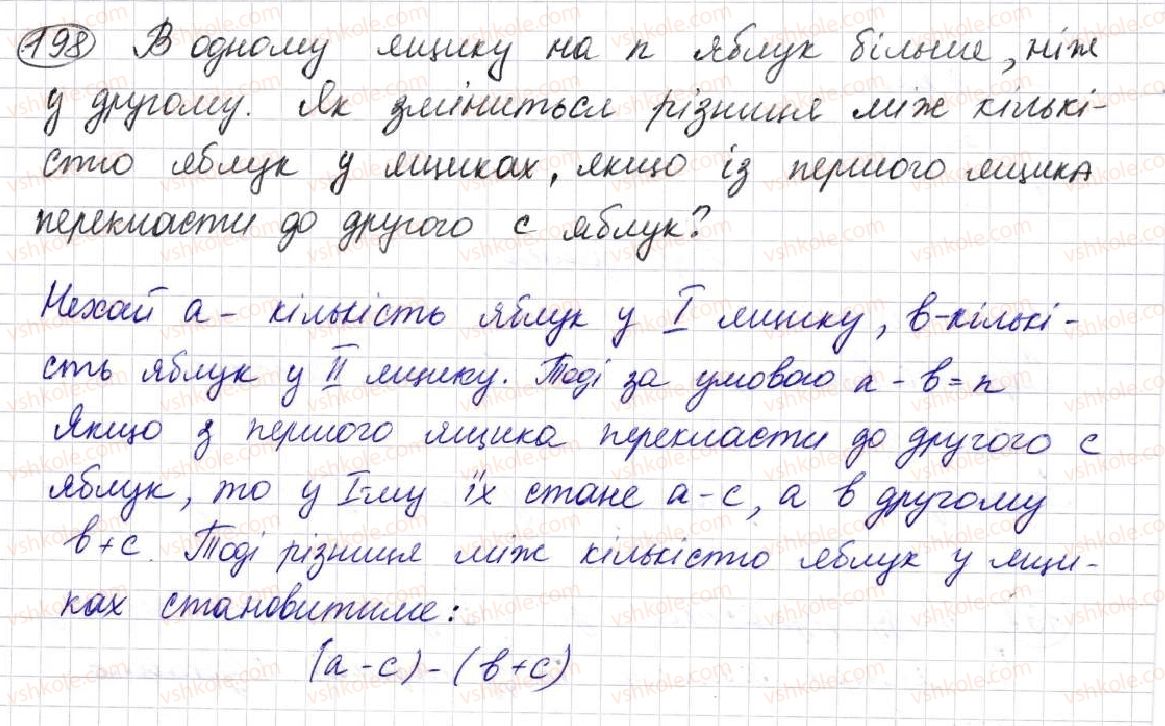 198 В одному ящику на n яблук більше, ніж
у другому. Як зміниться різниця між кількі-
стю яблук у ящиках, якщо із першого ящика
перекласти до другого с яблук?
Нехай а - кількість яблук у I ящику, в-кількі-
сть яблук у II ящику. Тоді за умовою а - в = n
Якщо з першого ящика перекласти до другого с
яблук, то у I-му їх стане а-с, а в другому
в+с. Тоді різниця між кількістю яблук у ящи-
ках становитиме:
(а-с)-(в+с)
vshkole.com